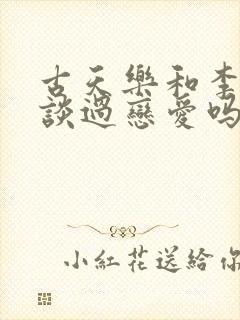 古天樂和李
談過戀愛嗎
小紅花送給你